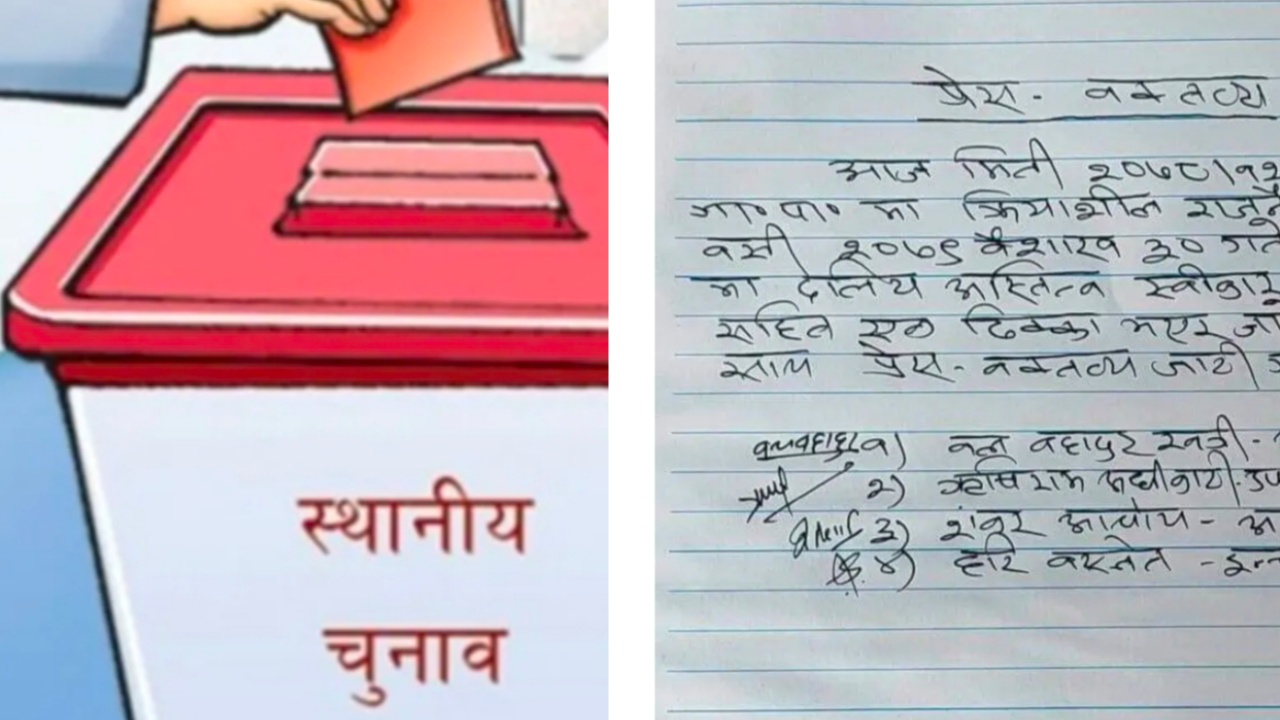 स्थानीय
चुनाव
प्रेस - वक्तव्य
आज मिती २०७८।१२
गा॰ पा॰ मा क्रियाशील
वसी २०७९ बैशाख ३० गते
मा दलिय अस्तित्व स्वीकार
सहित एक ढिक्का भएर
साथ प्रेस - वक्तव्य जारी
१) बल बहादुर खत्री -
२) ऋषि राम अधीकारी
३) शंकर आचार्य -
४) हरि बस्नेत -